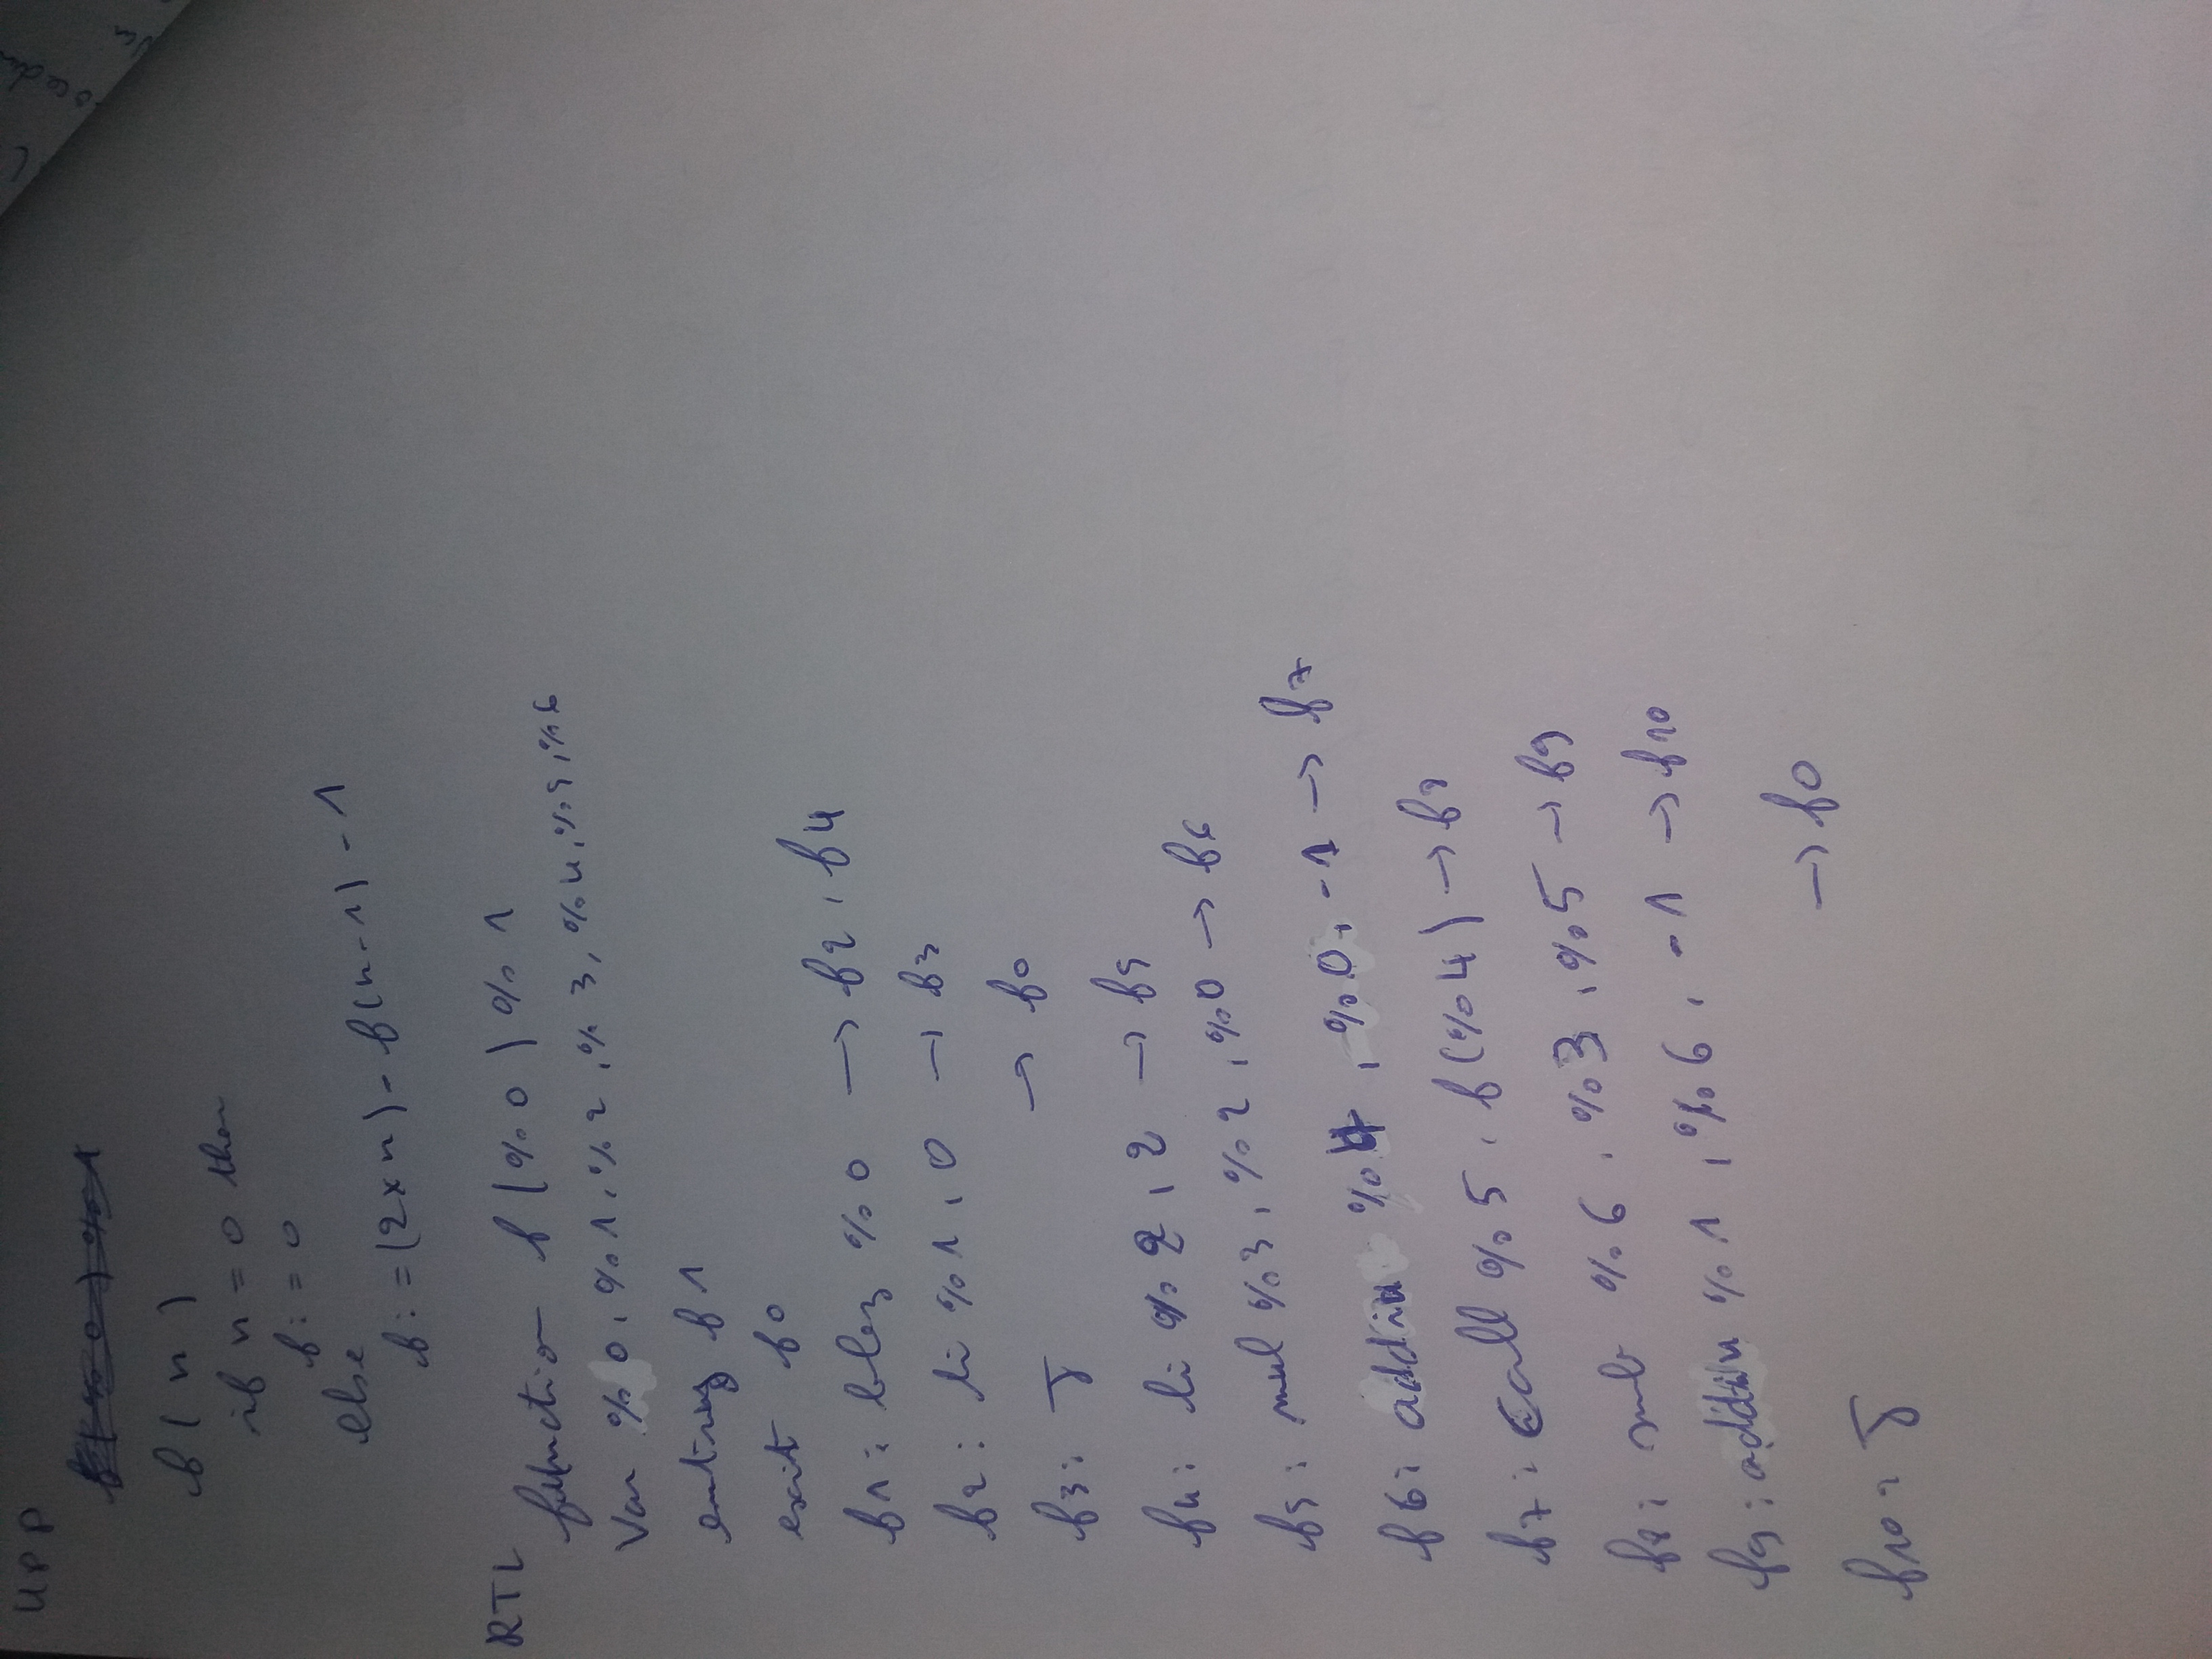 UPP
f(n)
if n = 0 then
f := 0
else
f := (2 x n) - f(n - 1) - 1
RTL
function f(%0) %1
Var %0, %1, %2, %3, %4, %5, %6
entry f1
exit f0
f1: blez %0 → f2, f4
f2: li %1, 0 → f3
f3: J → f0
f4: li %2, 2 → f5
f5: mul %3, %2, %0 → f6
f6: addiu %4, %0, -1 → f7
f7: call %5, f(%4) → f8
f8: sub %6, %3, %5 → f9
f9: addiu %1, %6, -1 → f10
f10: J → f0